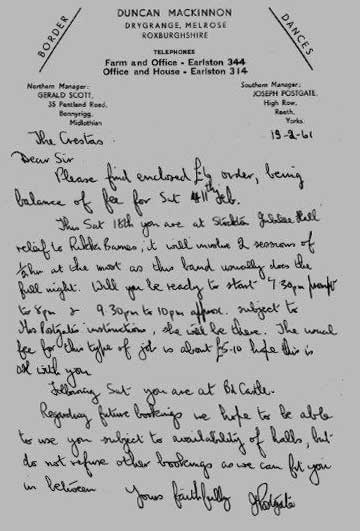 BORDER
DUNCAN MACKINNON
DRYGRANGE, MELROSE
ROXBURGHSHIRE
DANCES
TELEPHONES
Farm and Office - Earlston 344
Office and House - Earlston 314
Northern Manager:
GERALD SCOTT,
35 Pentland Road,
Bonnyrigg,
Midlothian
Southern Manager:
JOSEPH POSTGATE,
High Row,
Reeth,
Yorks.
The Crestas
19-2-61
Dear Sir
Please find enclosed order, being
balance of fee for Sat 11th Feb.
This Sat 18th you are at Stockton Jubilee Hall
relief to Barnes, it will involve 2 sessions of
½ hr at the most as this band usually does the
full night. Will you be ready to start 7.30pm prompt
to 8pm & 9.30pm to 10pm approx. subject to
Mrs Postgate's instructions, she will be there. The usual
fee for this type of job is about £5-10 hope this is
OK with you
Following Sat you are at B. Castle.
Regarding future bookings we hope to be able
to use you subject to availability of halls, but
do not refuse other bookings as we can fit you
in between
Yours faithfully
J Postgate